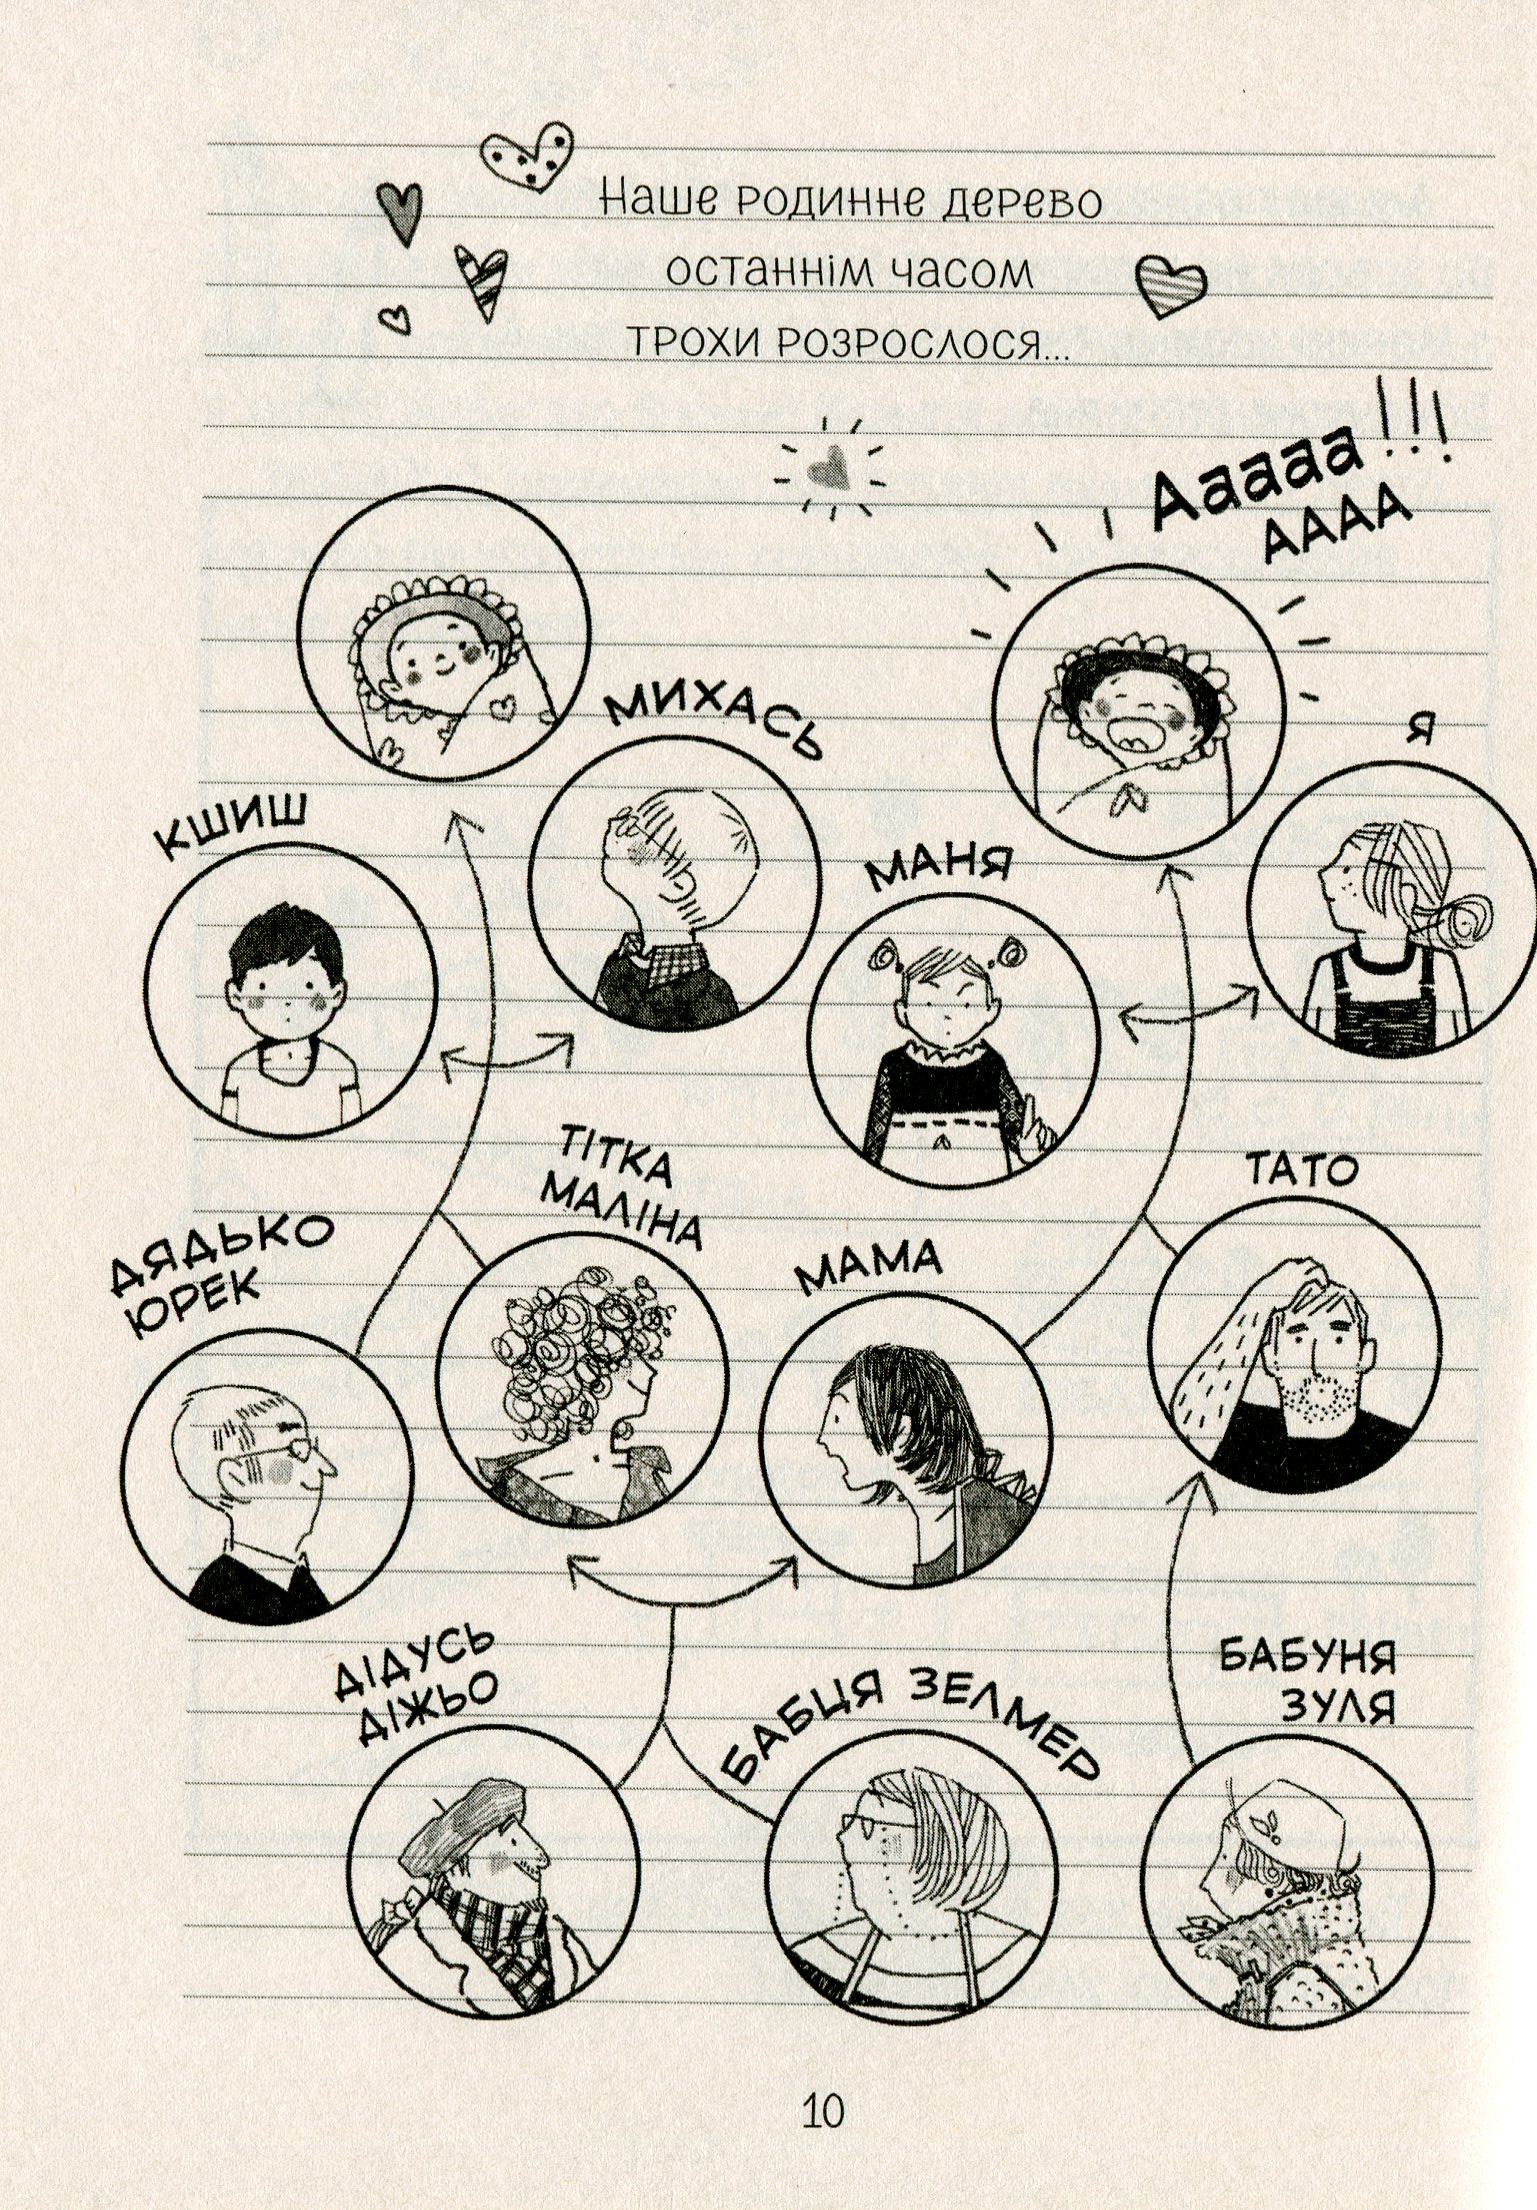 Наше родинне дерево
останнім часом
трохи розрослося...
Ааааа!!!
АААА
МИХАСЬ
Я
КШИШ
МАНЯ
ТІТКА
МАЛІНА
ТАТО
ДЯДЬКО
ЮРЕК
МАМА
ДІДУСЬ
ДІЖЬО
БАБЦЯ ЗЕЛМЕР
БАБУНЯ
ЗУЛЯ
10